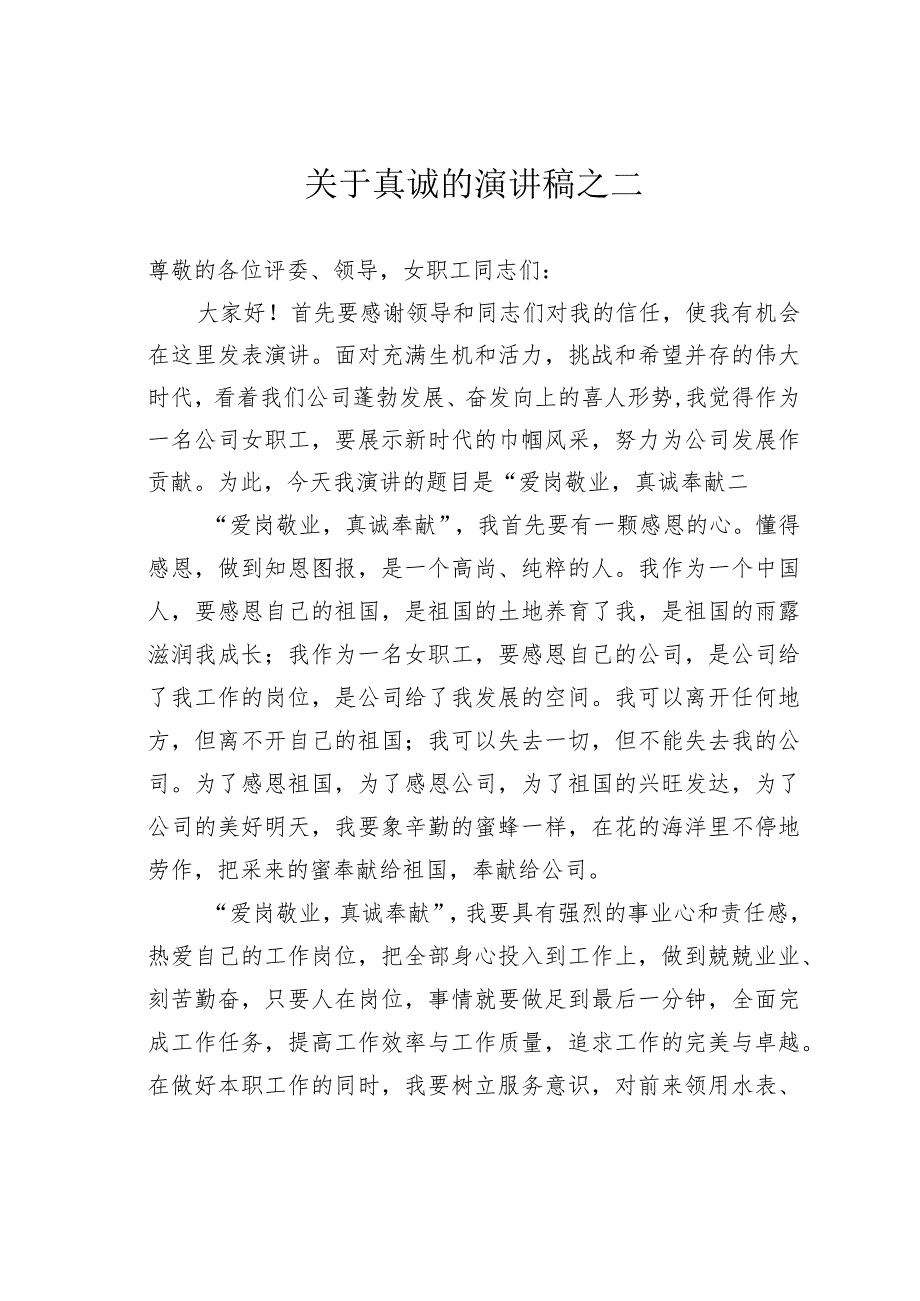 关于真诚的演讲稿之二
尊敬的各位评委、领导，女职工同志们：
大家好！首先要感谢领导和同志们对我的信任，使我有机会
在这里发表演讲。面对充满生机和活力，挑战和希望并存的伟大
时代，看着我们公司蓬勃发展、奋发向上的喜人形势,我觉得作为
一名公司女职工，要展示新时代的巾帼风采，努力为公司发展作
贡献。为此，今天我演讲的题目是“爱岗敬业，真诚奉献二
“爱岗敬业，真诚奉献”，我首先要有一颗感恩的心。懂得
感恩，做到知恩图报，是一个高尚、纯粹的人。我作为一个中国
人，要感恩自己的祖国，是祖国的土地养育了我，是祖国的雨露
滋润我成长；我作为一名女职工，要感恩自己的公司，是公司给
了我工作的岗位，是公司给了我发展的空间。我可以离开任何地
方，但离不开自己的祖国；我可以失去一切，但不能失去我的公
司。为了感恩祖国，为了感恩公司，为了祖国的兴旺发达，为了
公司的美好明天，我要象辛勤的蜜蜂一样，在花的海洋里不停地
劳作，把采来的蜜奉献给祖国，奉献给公司。
“爱岗敬业，真诚奉献”，我要具有强烈的事业心和责任感，
热爱自己的工作岗位，把全部身心投入到工作上，做到兢兢业业、
刻苦勤奋，只要人在岗位，事情就要做足到最后一分钟，全面完
成工作任务，提高工作效率与工作质量，追求工作的完美与卓越。
在做好本职工作的同时，我要树立服务意识，对前来领用水表、